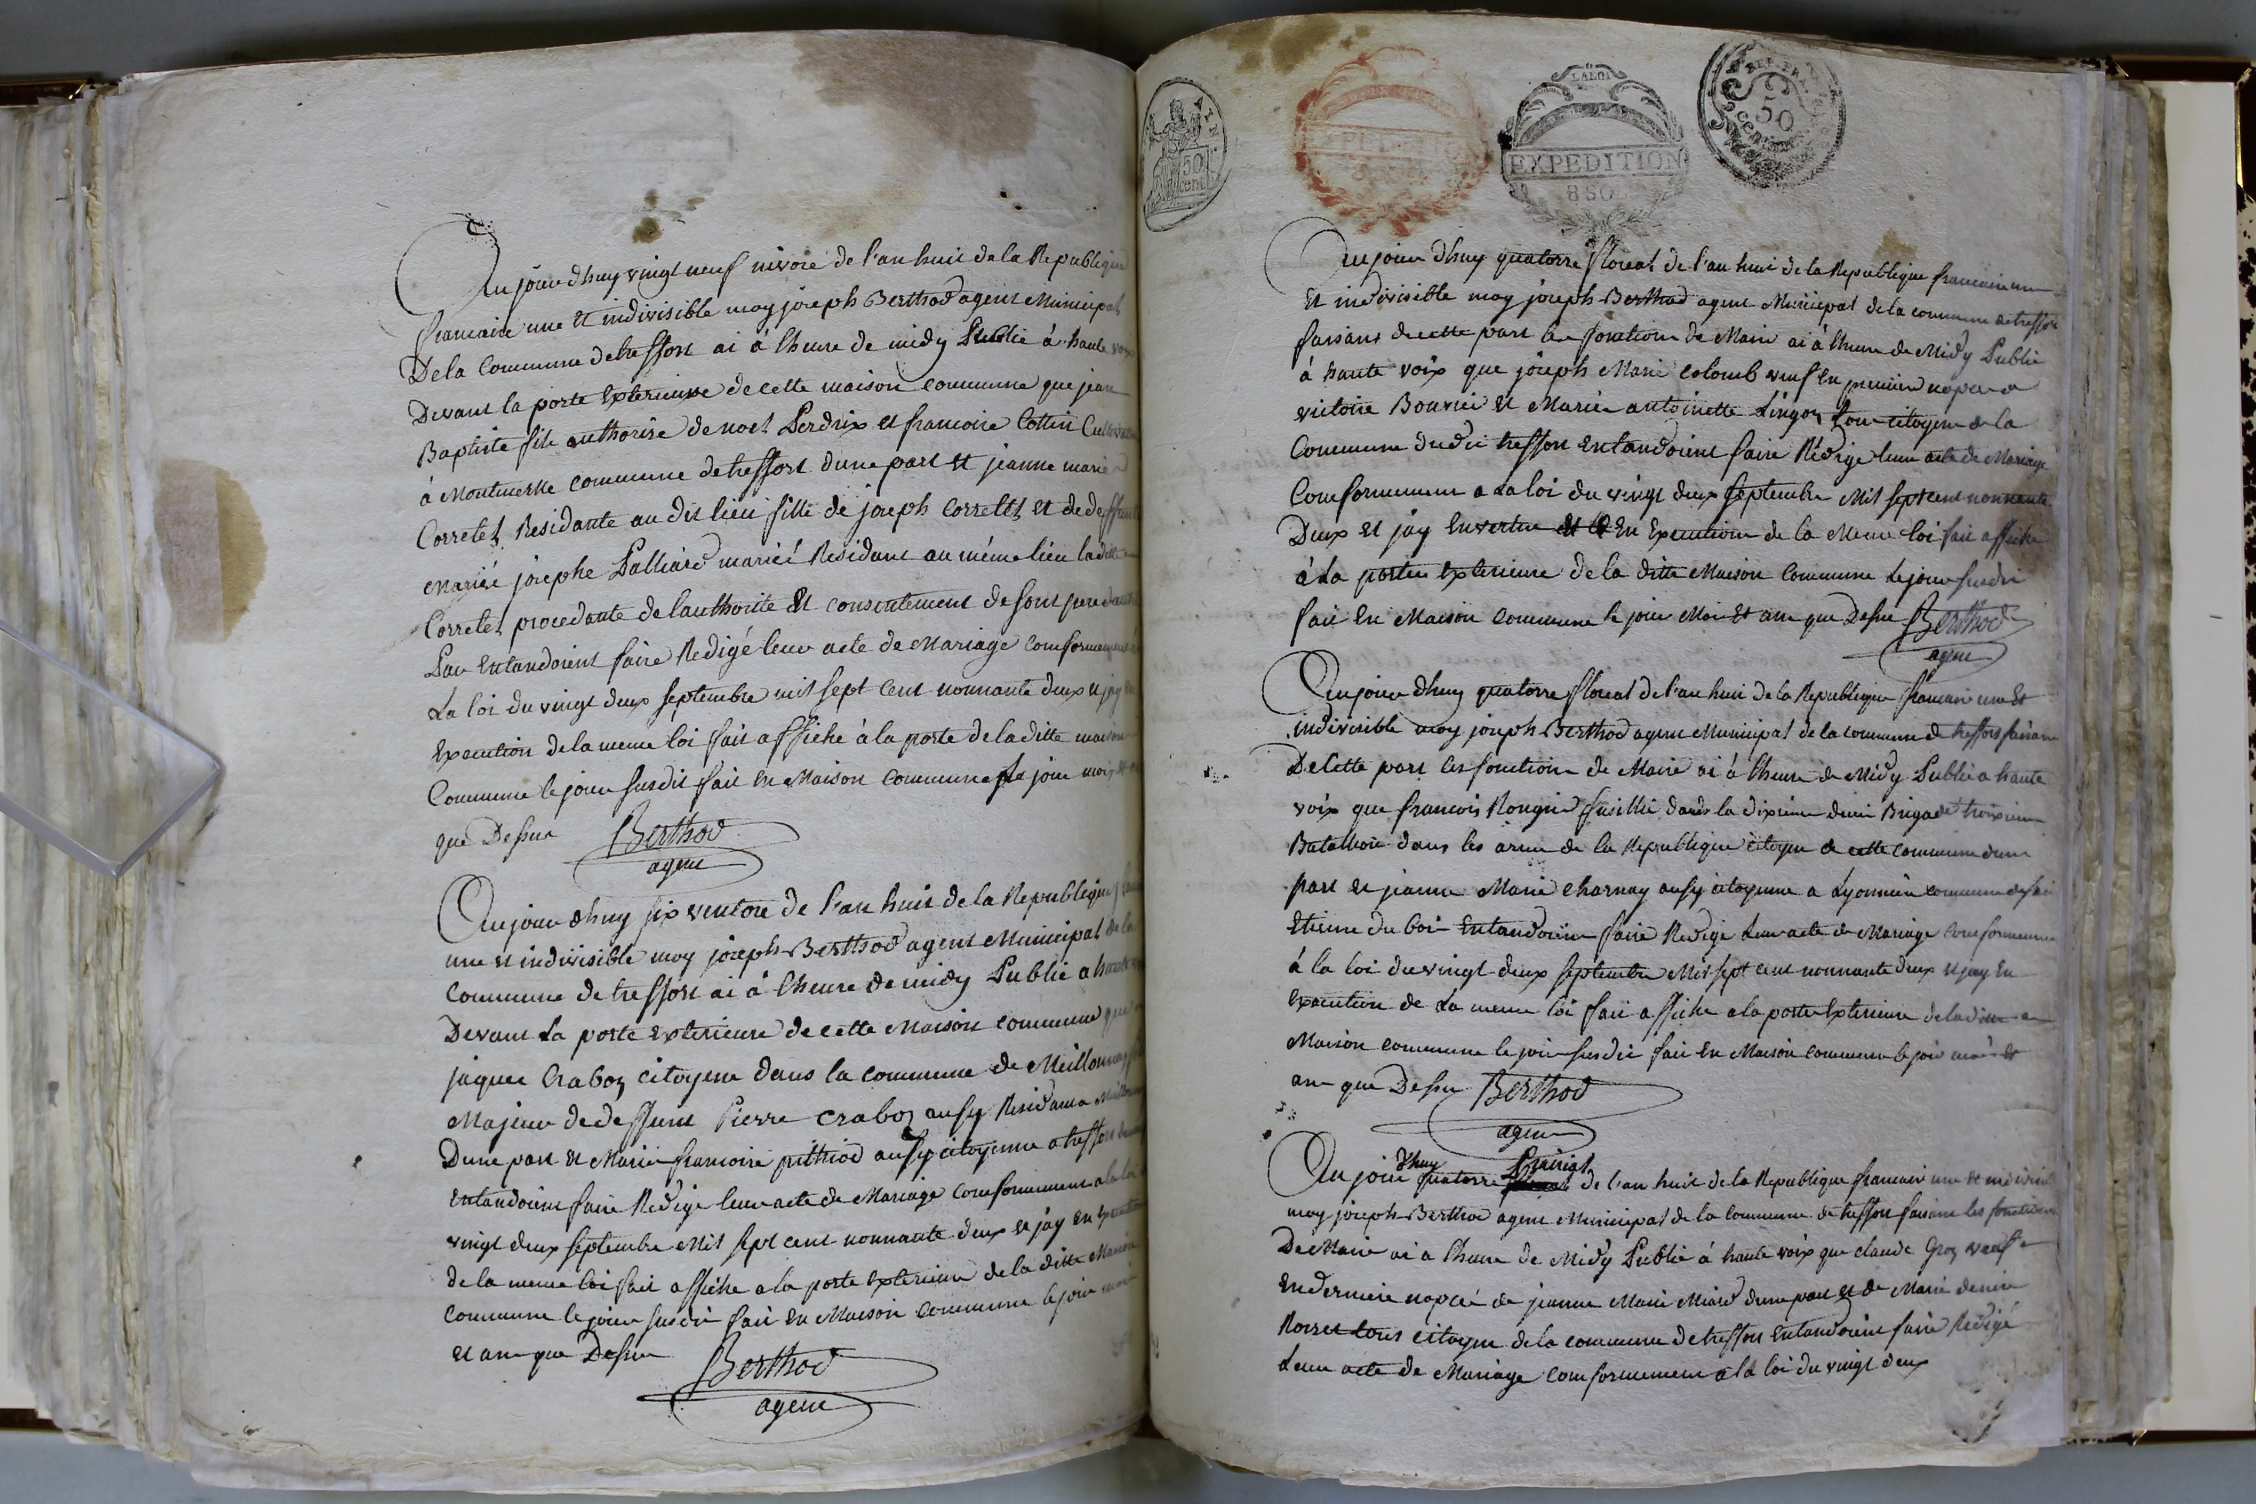 Aujourdhuy vingt neuf nivose de l'an huit de la Republique
francaise une et indivisible moy joseph Berthod agent Municipal
De la Commune de treffort ai à lheure de midy Publié à haute voix
Devant la porte Exterieure de cette maison commune que jean
Baptiste fils authorisé de noel Perdrix et francoise Cottin Cultivateur
à Montmerle commune de treffort dune part et jeanne marie
Corretel Residante au dit lieu fille de joseph Corretel et de deffunte
Mariée josephe Palliard mariée Residant au même lieu la ditte
Corretel procedante de l'authorité Et consentement de sont pere
Entandoient faire Redigé leur acte de Mariage Conformement
La loi du vingt deux septembre mil sept cent nonnante deux et jay
Execution de la meme loi fait affiché à la porte de la ditte maison
Commune le jour susdit fait En Maison commune le jour mois et
que Dessus Berthod
agent
Aujourdhuy six ventose de l'an huit de la Republique
une et indivisible moy joseph Berthod agent Municipal de la
Commune de treffort ai à lheure de midy Publié a haute
Devant La porte Exterieure de cette Maison commune que
jaques Craboz citoyen dans la commune de Meillonnay
Majeur de deffunt Pierre craboz aussy Residant a
Dune part et Marie francoise pithiod aussy citoyenne a treffort
Entandoient faire Redigé leur acte de Mariage conformement a la loi
vingt deux septembre Mil sept cent nonnante deux et jay en
de la meme loi fait affiché a la porte Exterieure de la ditte Maison
commune le jour susdit fait En Maison commune le jour mois
et an que Dessus Berthod
agent
AIN
50
cent
EXPEDITION
LA LOI
EXPEDITION
REP. FRA.
50
CENTIMES
Aujourdhuy quatorze floreal de l'an huit de la Republique francaise une
Et indivisible moy joseph Berthod agent Municipal de la commune de treffort
faisant de cette part les fonctions de Maire ai à lheure de Midy Publié
à haute voix que joseph Marie colomb veuf en premiere nopce a
victoire Bouvier et Marie antoinette Lingoz tous citoyens de la
Commune dudit treffort Entandoient faire Rédigé leur acte de Mariage
Conformement a La loi du vingt deux septembre Mil sept cent nonnante
Deux et jay En vertu et En Execution de la Meme loi fait affiché
à La porte Exterieure de la ditte Maison Commune Le jour susdit
fait En Maison commune le jour Mois Et an que Dessus Berthod
agent
Aujourdhuy quatorze floreal de l'an huit de la Republique francaise une Et
indivisible moy joseph Berthod agent Municipal de la commune de treffort faisant
De Cette part les fonctions de Maire ai à lheure de Midy Publié a haute
voix que francois Rongier fusillié dans la dixieme demi Brigade troixieme
Batallion dans les armé de la Republique citoyen de cette commune dune
part et jeanne Marie charnay aussy citoyenne a Lyonnière commune de saint
Etienne du bois Entandoient faire Redigé Leur acte de Mariage conformement
à la loi du vingt deux septembre Mil sept cent nonnante deux et jay En
Execution de La meme loi fait affiché a la porte Exterieure de la ditte
Maison commune le jour susdit fait En Maison commune le jour mois et
an que Dessus Berthod
agent
Au jour dhuy quatorze Prairial de l'an huit de la Republique francaise une et indivisible
moy joseph Berthod agent Municipal de la commune de treffort faisant les fonctions
De Maire ai a lheure de Midy Publié à haute voix que claude Groz veuf
En derniere nopce de jeanne Marie Miard dune part et de Marie denise
Rorret tous citoyens de la commune de treffort Entandoient faire Redigé
Leur acte de Mariage conformement a la loi du vingt deux